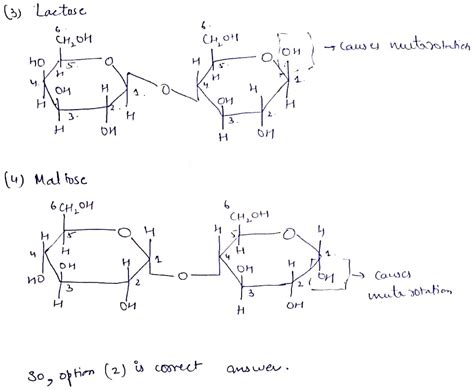 (3) Lactose
6 CH₂OH
6. CH₂OH
HO 4. H 5. O H OH H 3. H 2. OH 1. H O H 4. H 5. O OH H 3. H 2. OH 1. OH H → causes mutarotation
(4) Maltose
6 CH₂OH
6 CH₂OH
H 4 HO 5 H O OH H 3 H 2 OH H 1 O H 4 5 H O OH H 3 H 2 OH H 1 OH → causes mutarotation
So, option (2) is correct answer.